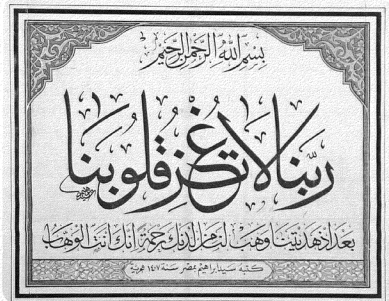 بسم الله الرحمن الرحيم
ربنا لا تزغ قلوبنا
بعد إذ هديتنا وهب لنا من لدنك رحمة إنك أنت الوهاب
كتبه سيد إبراهيم بمصر سنة ١٤٠٧ هجرية